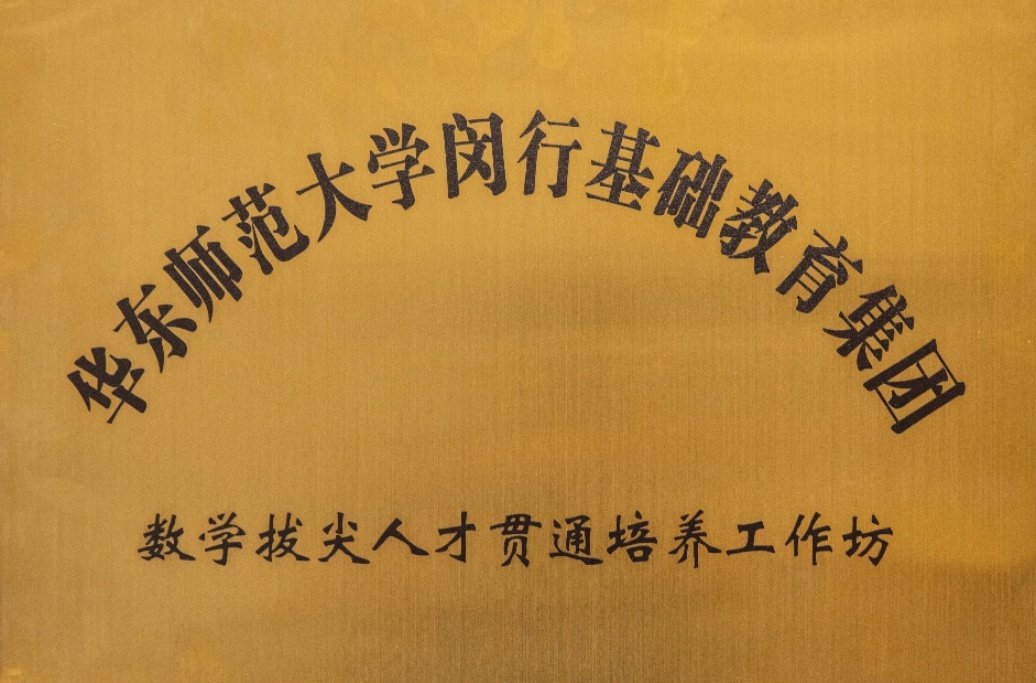 华东师范大学闵行基础教育集团
数学拔尖人才贯通培养工作坊